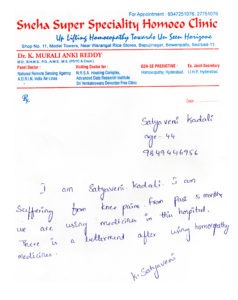 For Appointment : 9347251076, 27751076
Sneha Super Speciality Homoeo Clinic
Up Lifting Homoeopathy Towards Un Seen Horizons
Shop No. 11, Model Towers, Near Warangal Rice Stores, Bapujinagar, Bowenpally, Sec'bad-11.
Dr. K. MURALI ANKI REDDY
Panel Doctor :
National Remote Sensing Agency
A.D.R.I.N. India Air Lines
Visiting Doctor for :
N.R.S.A. Housing Complex,
Advanced Data Research Institute
Sri Venkateswara Devotion Free Clinic
Homoeopathy, Hyderabad.
Ex. Joint Secretary
I.I.H.P. Hyderabad
Rx
Satyaveni Kadali
age - 44
9849446956
I am Satyaveni Kadali. I am
Suffering from knee pains from past 5 months
we are using medicines in this hospital.
There is a betterment after using homeopathy
medicines.
K. Satyaveni